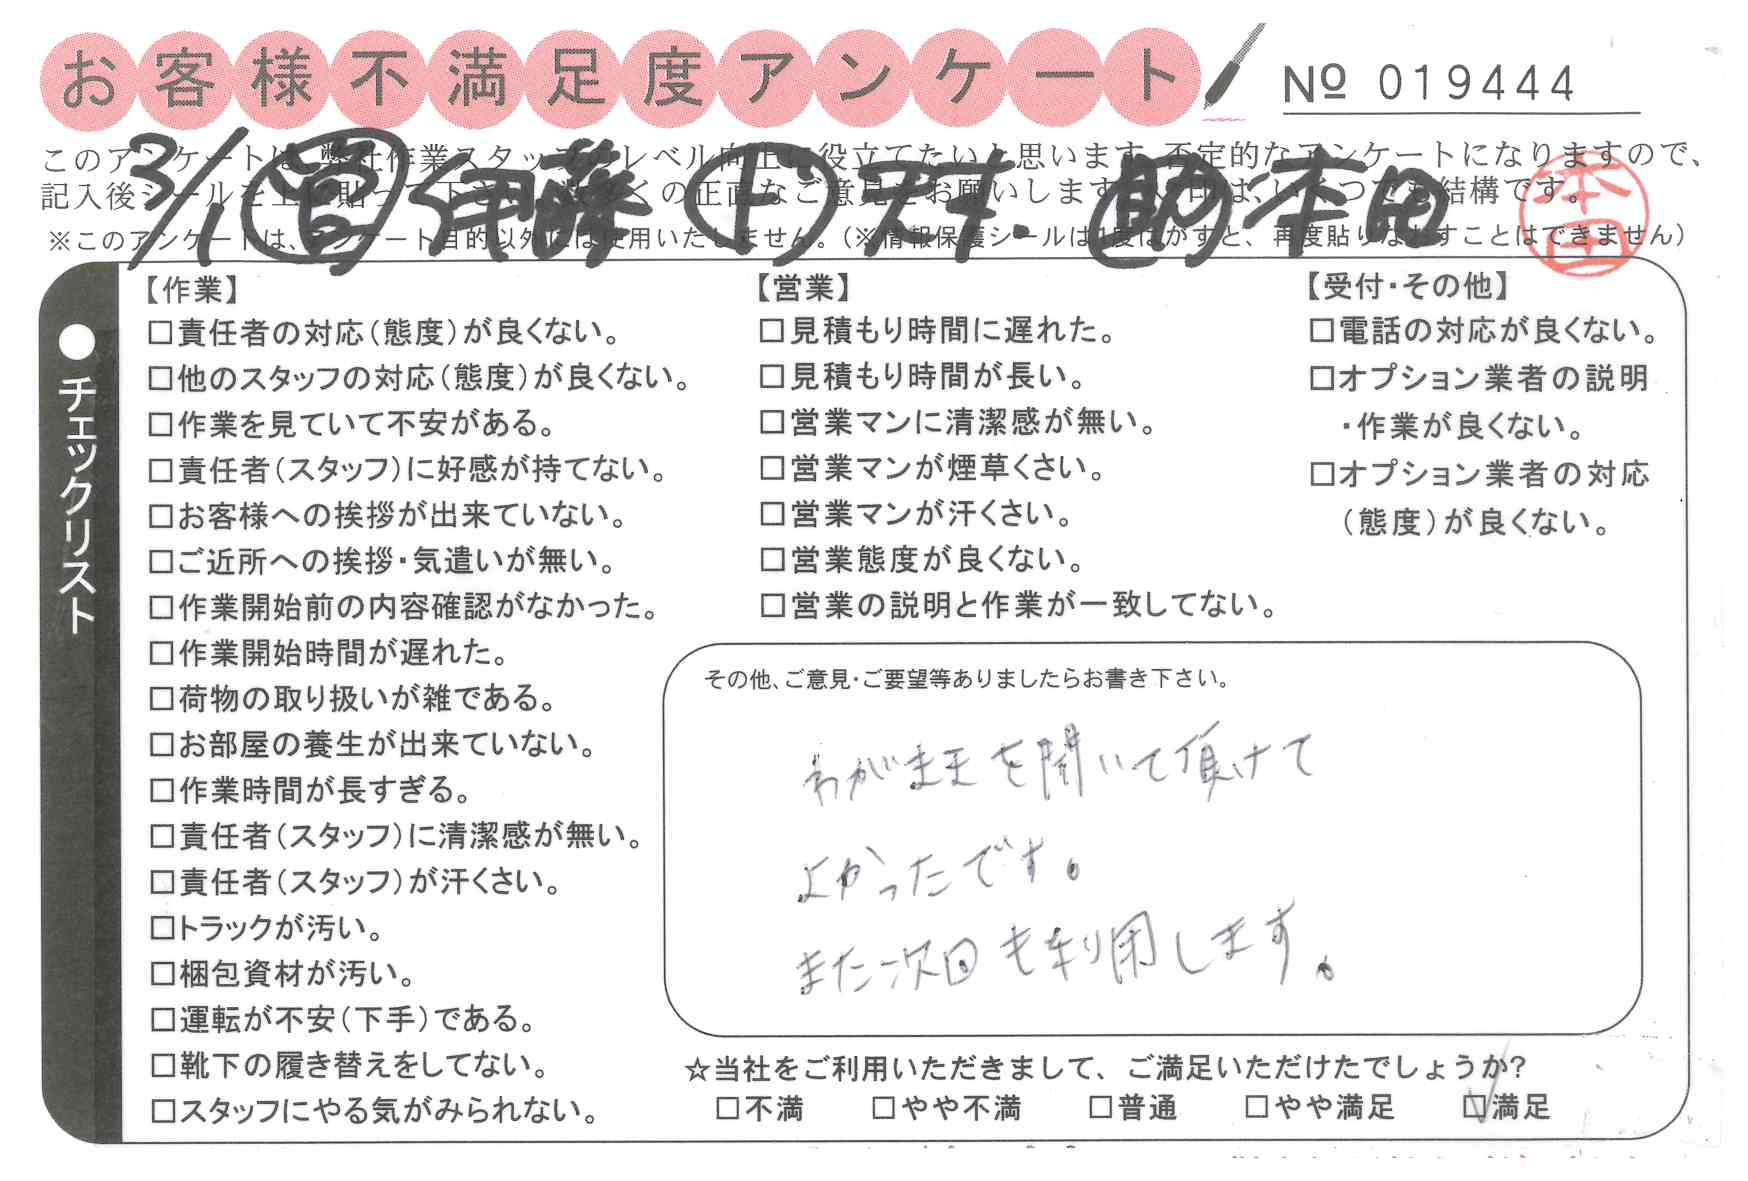 お客様不満足度アンケート
№ 019444
このアンケートは、弊社作業スタッフのレベル向上に役立てたいと思います。不定的なアンケートになりますので、
記入後シールを上に貼って下さい。数多くの正直なご意見をお願いします。
印は、いくつでも結構です。
※このアンケートは、アンケート目的以外には使用いたしません。（※情報保護シールは1度はがすと、再度貼りなおすことはできません）
3/1 営 伊藤 ド 助 本田
本田
●チェックリスト
【作業】
□責任者の対応（態度）が良くない。
□他のスタッフの対応（態度）が良くない。
□作業を見ていて不安がある。
□責任者（スタッフ）に好感が持てない。
□お客様への挨拶が出来ていない。
□ご近所への挨拶・気遣いが無い。
□作業開始前の内容確認がなかった。
□作業開始時間が遅れた。
□荷物の取り扱いが雑である。
□お部屋の養生が出来ていない。
□作業時間が長すぎる。
□責任者（スタッフ）に清潔感が無い。
□責任者（スタッフ）が汗くさい。
□トラックが汚い。
□梱包資材が汚い。
□運転が不安（下手）である。
□靴下の履き替えをしてない。
□スタッフにやる気がみられない。
【営業】
□見積もり時間に遅れた。
□見積もり時間が長い。
□営業マンに清潔感が無い。
□営業マンが煙草くさい。
□営業マンが汗くさい。
□営業態度が良くない。
□営業の説明と作業が一致してない。
【受付・その他】
□電話の対応が良くない。
□オプション業者の説明
・作業が良くない。
□オプション業者の対応
（態度）が良くない。
その他、ご意見・ご要望等ありましたらお書き下さい。
わがままを聞いて頂けて
よかったです。
また次回も利用します。
☆当社をご利用いただきまして、ご満足いただけたでしょうか?
□不満 □やや不満 □普通 □やや満足 ☑満足